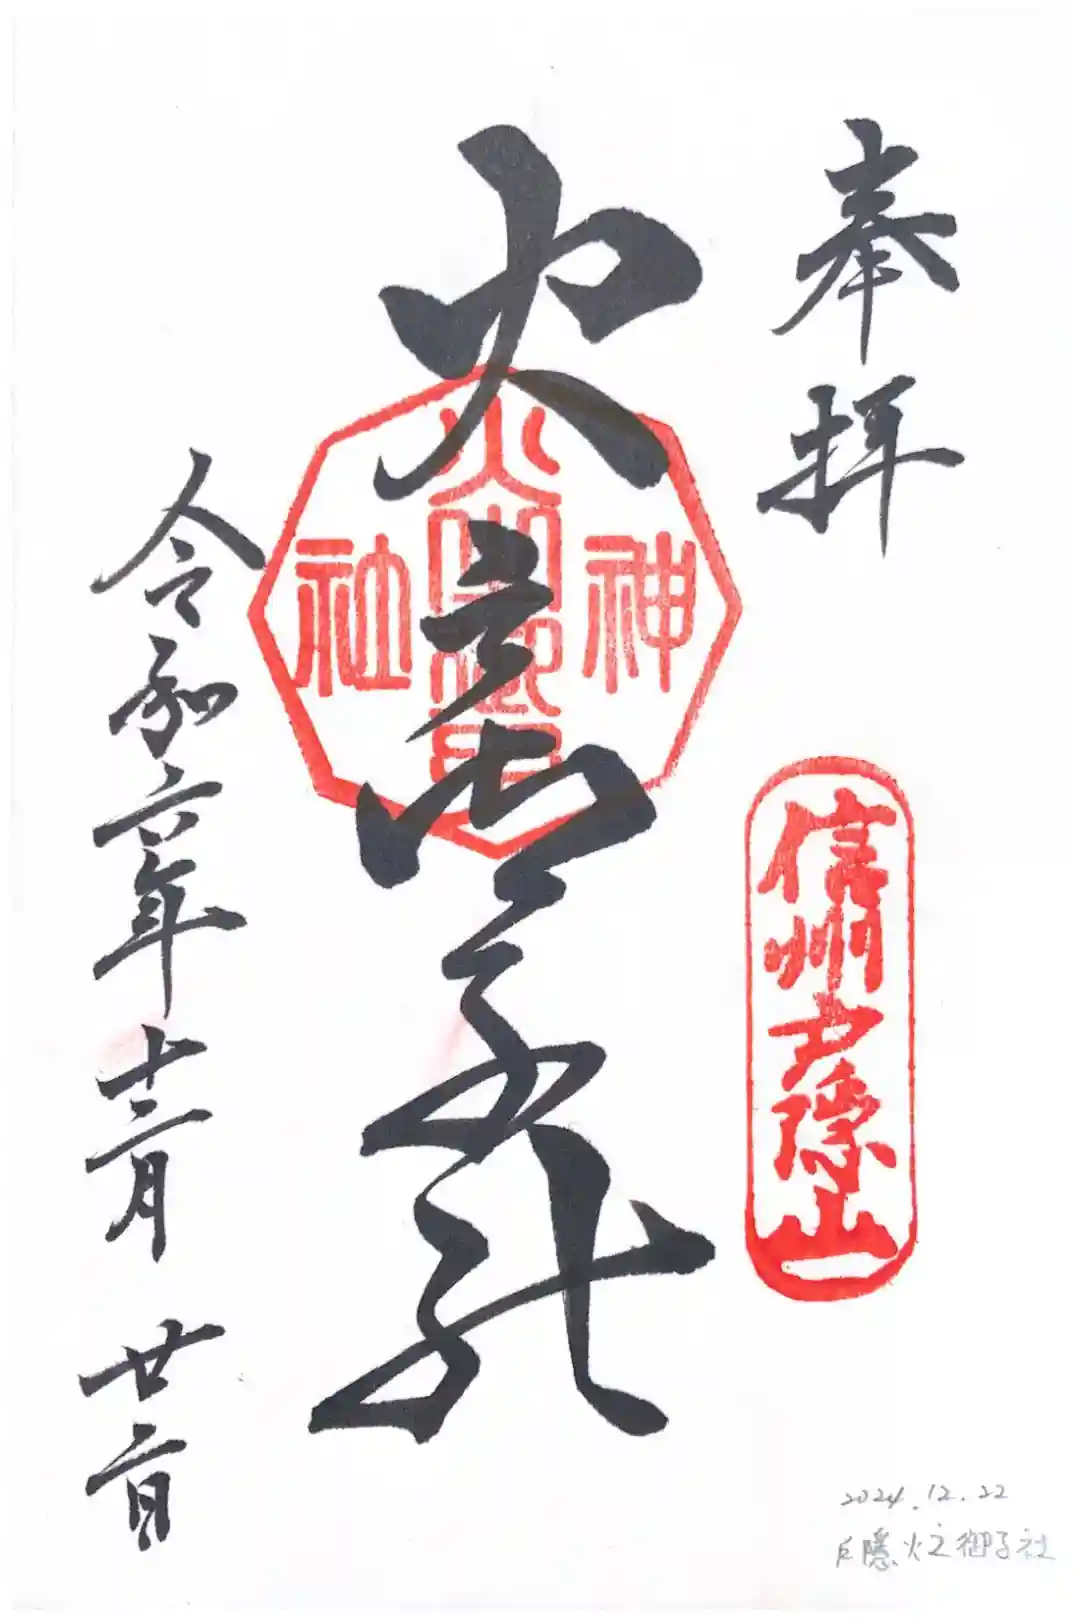 奉拝
信州戸隠山
火之御子社
神
火之御子
社
令和六年十二月廿二日
2024.12.22
戸隠火之御子社